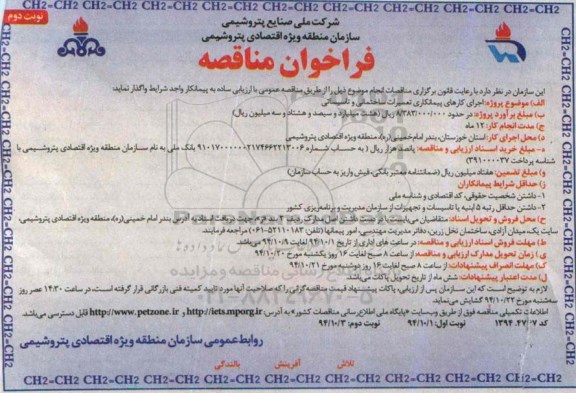 نوبت دوم
شرکت ملی صنایع پتروشیمی
سازمان منطقه ویژه اقتصادی پتروشیمی
فراخوان مناقصه
این سازمان در نظر دارد با رعایت قانون برگزاری مناقصات انجام موضوع ذیل را از طریق مناقصه عمومی با ارزیابی ساده به پیمانکار واجد شرایط واگذار نماید:
الف) موضوع پروژه: اجرای کارهای پیمانکاری تعمیرات ساختمانی و تاسیساتی
ب) مبلغ برآورد پروژه: در حدود ۸/۳۸۳/۰۰۰/۰۰۰ ریال (هشت میلیارد و سیصد و هشتاد و سه میلیون ریال)
ج) مدت انجام کار: ۱۲ ماه
د) محل اجرای کار: استان خوزستان، بندر امام خمینی(ره)، منطقه ویژه اقتصادی پتروشیمی
ه) مبلغ خرید اسناد ارزیابی و مناقصه: پانصد هزار ریال به حساب شماره بانک ملی به نام سازمان منطقه ویژه اقتصادی پتروشیمی با
شناسه پرداخت
و) مبلغ تضمین: هفتاد میلیون ریال (ضمانتنامه معتبر بانکی، فیش واریز به حساب سازمان)
ز) حداقل شرایط پیمانکاران
۱- داشتن شخصیت حقوقی، کد اقتصادی و شناسه ملی
۲- داشتن حداقل رتبه ابنیه یا تاسیسات و تجهیزات از سازمان مدیریت و برنامه‌ریزی کشور
ح) محل فروش و تحویل اسناد: متقاضیان می‌بایست با در دست داشتن اصل مدارک جهت دریافت اسناد به آدرس بندر امام خمینی(ره)، منطقه ویژه اقتصادی پتروشیمی،
سایت یک، میدان آزادی، ساختمان نخل زرین، دفتر مدیریت مهندسی، امور پیمانها (تلفن: ۵۲۱۱۰۱۸۳-۰۶۱) مراجعه فرمایند.
ط) مهلت فروش اسناد ارزیابی و مناقصه: در ساعت های اداری از تاریخ ۹۴/۱۰/۱ لغایت ۹۴/۱۰/۹ می‌باشد.
ی) زمان تحویل مدارک ارزیابی و مناقصه: از ساعت ۸ صبح لغایت ۱۶ روز یکشنبه مورخ ۹۴/۱۰/۲۰
ک) مهلت انصراف پیشنهادات: از ساعت ۸ صبح لغایت ۱۶ روز دوشنبه مورخ ۹۴/۱۰/۲۱
ل) مدت اعتبار پیشنهادات: شش ماه از تاریخ تحویل پاکات می‌باشد.
لازم به توضیح است که این سازمان پس از ارزیابی، پاکات پیشنهاد قیمت مناقصه‌گرانی را که صلاحیت آنها مورد تایید کمیته فنی بازرگانی قرار گرفته است، در ساعت ۱۴:۳۰ عصر روز
سه‌شنبه مورخ ۹۴/۱۰/۲۲ گشایش می‌نماید.
اطلاعات تکمیلی مناقصه فوق از طریق وب‌سایت «پایگاه ملی اطلاع‌رسانی مناقصات کشور» به آدرس: http://iets.mporg.ir و http://www.petzone.ir قابل دسترسی می‌باشد.
کد ۱۳۹۴،۴۷۰۷ نوبت اول: ۹۴/۱۰/۱ نوبت دوم: ۹۴/۱۰/۳
روابط عمومی سازمان منطقه ویژه اقتصادی پتروشیمی
تلاش آفرینش بالندگی
CH2=CH2 CH2=CH2 CH2=CH2 CH2=CH2 CH2=CH2 CH2=CH2 CH2=CH2 CH2=CH2
۰۲۱-۸۸۳۴۹۶۷۰-۵